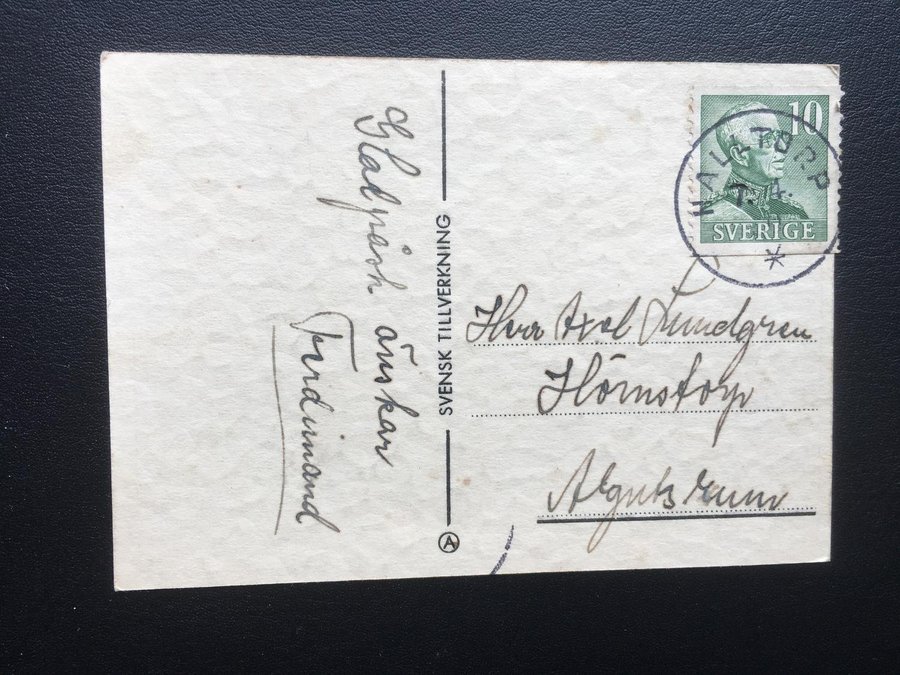 Glad påsk önskar
Ferdinand
SVENSK TILLVERKNING
A
10
SVERIGE
KALLTORP
7. 4.
Herr Axel Lundgren
Hörnstorp
Algutsrum